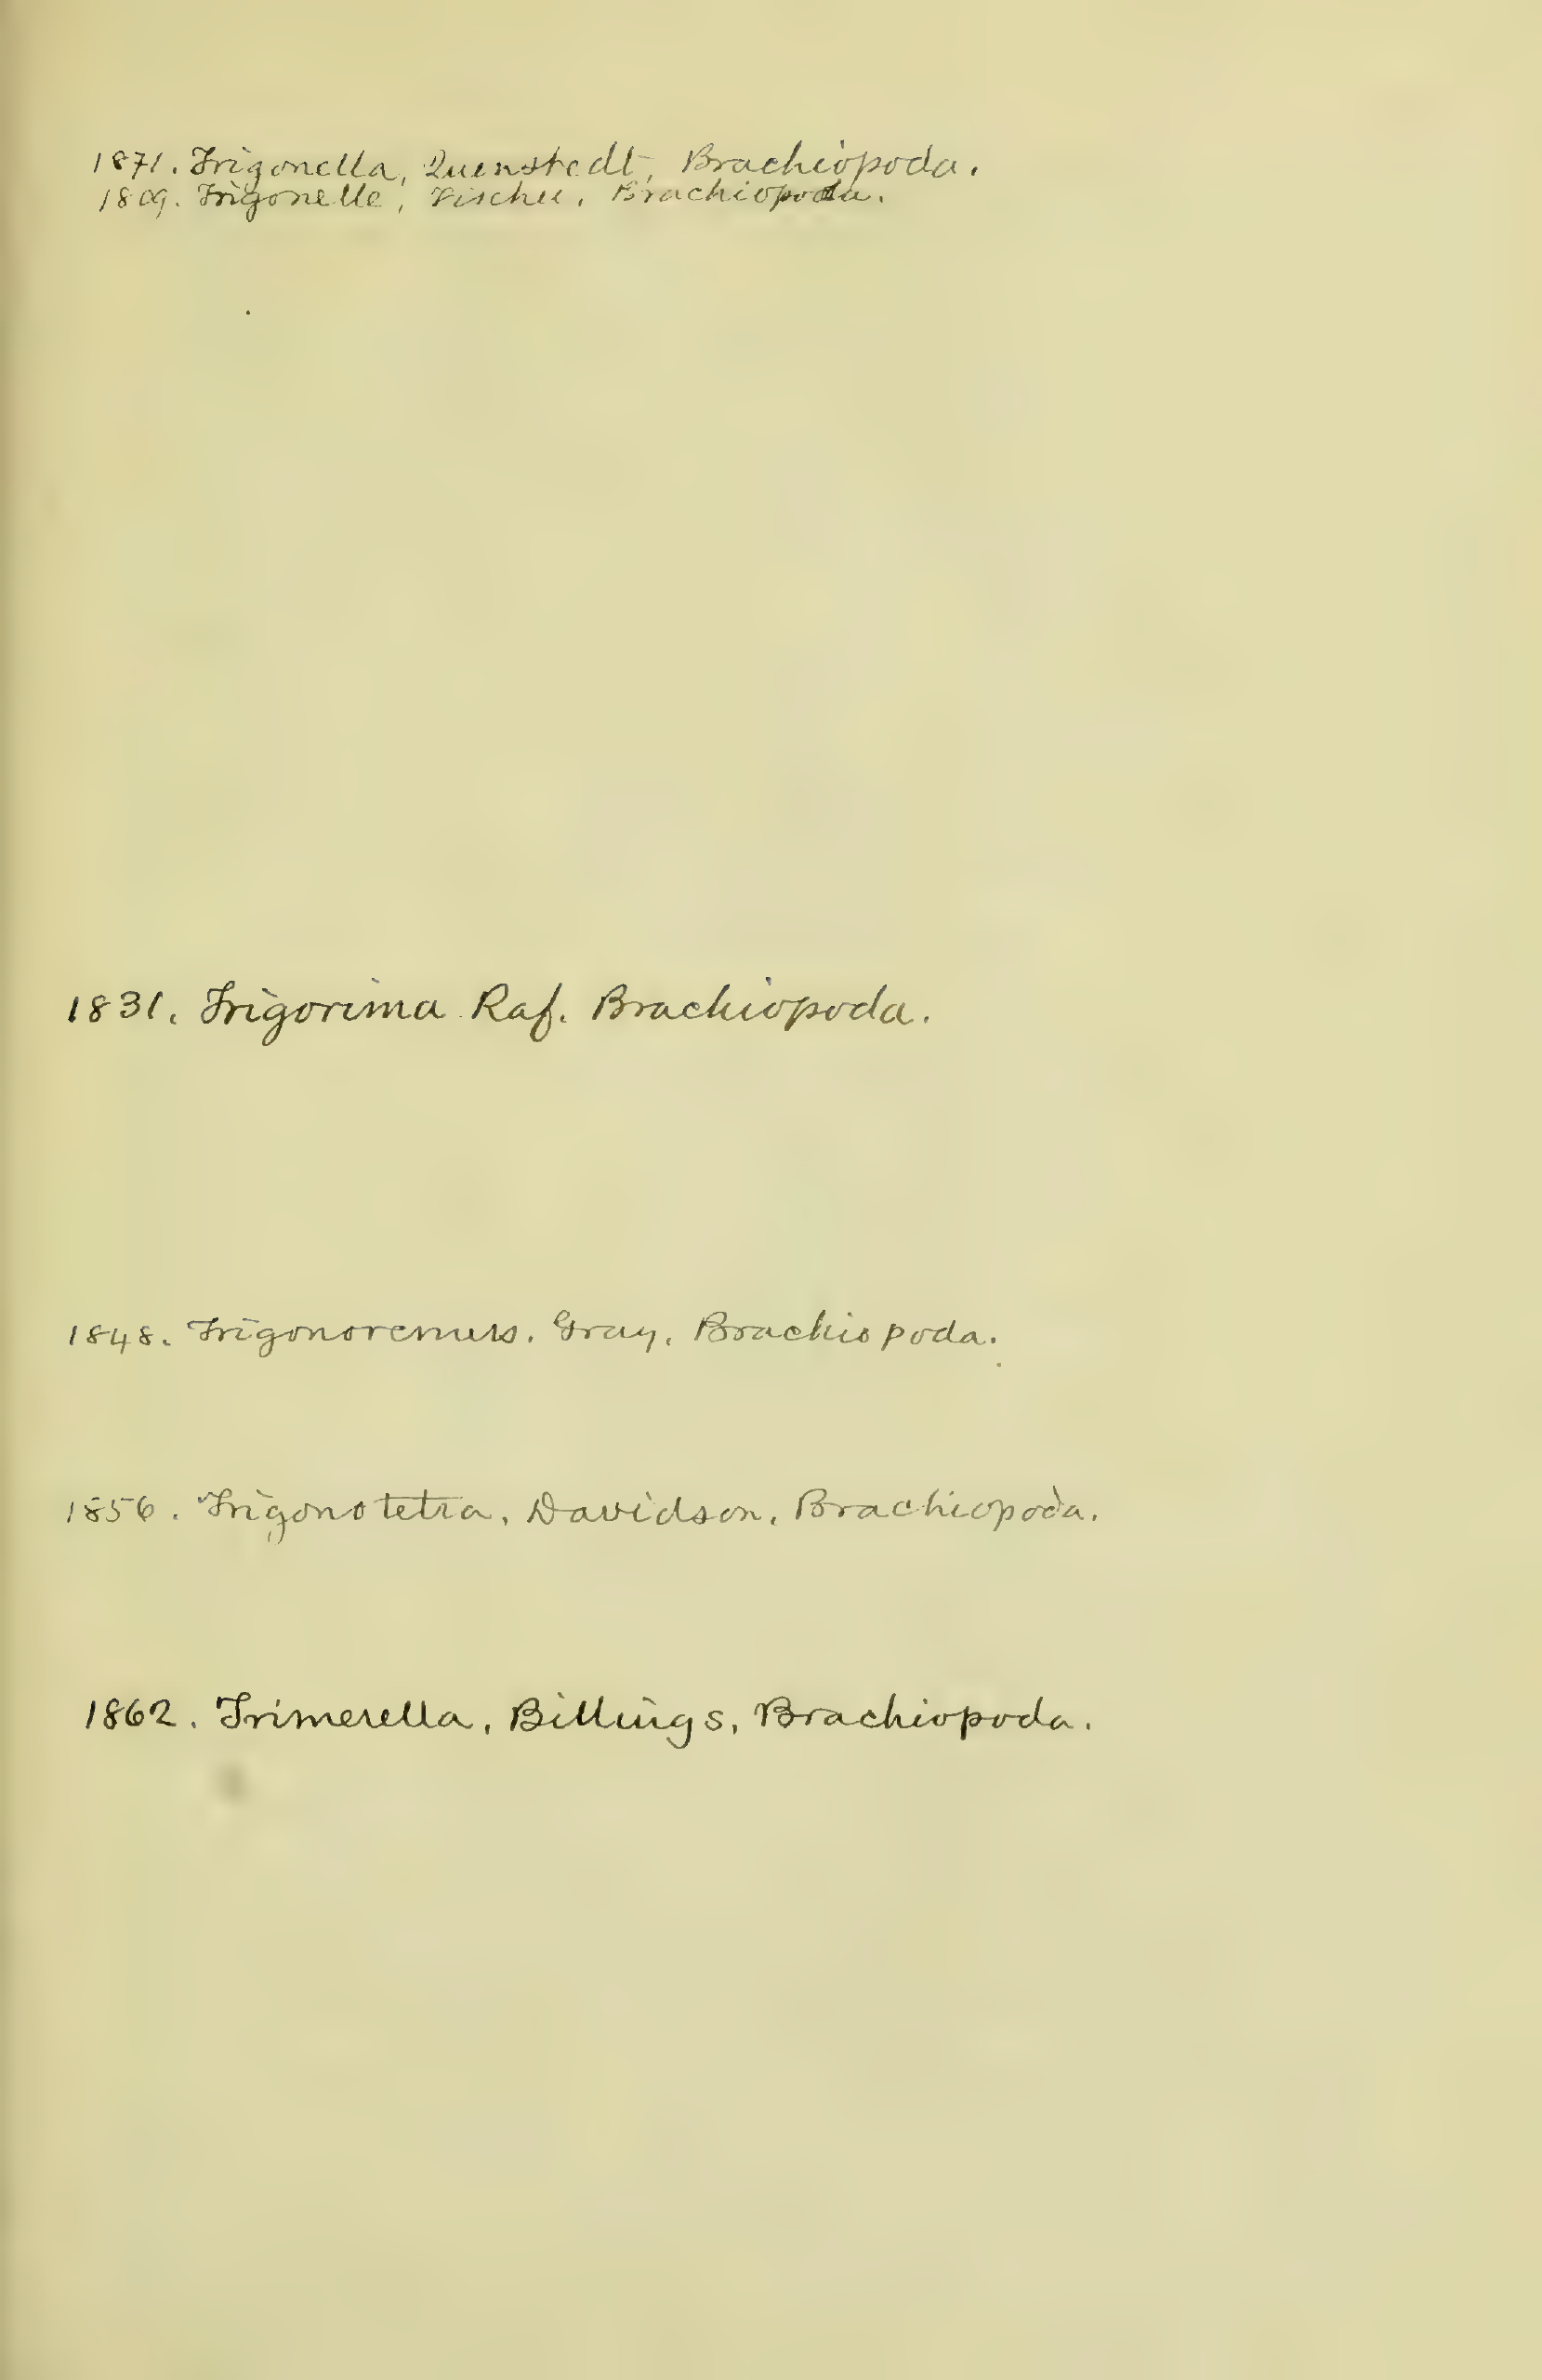 1871. Trigonella, Quenstedt, Brachiopoda.
1809. Trigonelle, Fischer, Brachiopoda.
1831. Trigorima Raf. Brachiopoda.
1848. Trigonoremus. Gray, Brachiopoda.
1856. Trigonotetra, Davidson, Brachiopoda.
1862. Trimerella, Billings, Brachiopoda.